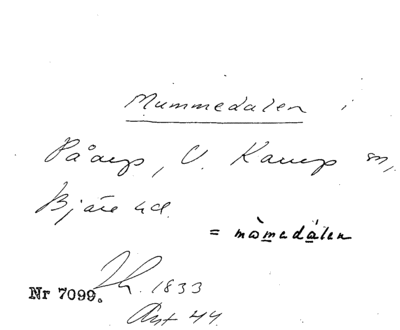 Mummedalen i
Påarp, V. Karup sn,
Bjäre hd.
= mòmedálen
Nr 7099. Jh. 1833
Avst 44